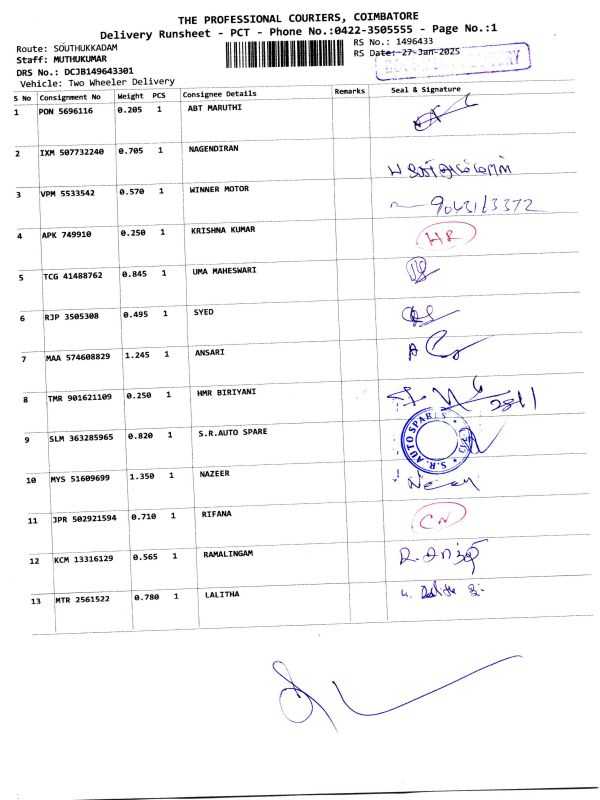 THE PROFESSIONAL COURIERS, COIMBATORE
Delivery Runsheet - PCT - Phone No.:0422-3505555 - Page No.:1
Route: SOUTHUKKADAM
RS No.: 1496433
Staff: MUTHUKUMAR
RS Date: 27-Jan-2025
DRS No.: DCJB149643301
Vehicle: Two Wheeler Delivery
S No Consignment No Weight PCS Consignee Details Remarks Seal & Signature
1 PON 5696116 0.205 1 ABT MARUTHI
2 IXM 507732240 0.705 1 NAGENDIRAN
3 VPM 5533542 0.570 1 WINNER MOTOR 9043113372
4 APK 749910 0.250 1 KRISHNA KUMAR HR
5 TCG 41488762 0.845 1 UMA MAHESWARI
6 RJP 3505308 0.495 1 SYED
7 MAA 574608829 1.245 1 ANSARI
8 TMR 901621109 0.250 1 HMR BIRIYANI 28/1
9 SLM 363285965 0.820 1 S.R.AUTO SPARE S.R. AUTO SPARES
10 MYS 51609699 1.350 1 NAZEER
11 JPR 502921594 0.710 1 RIFANA CN
12 KCM 13316129 0.565 1 RAMALINGAM
13 MTR 2561522 0.780 1 LALITHA